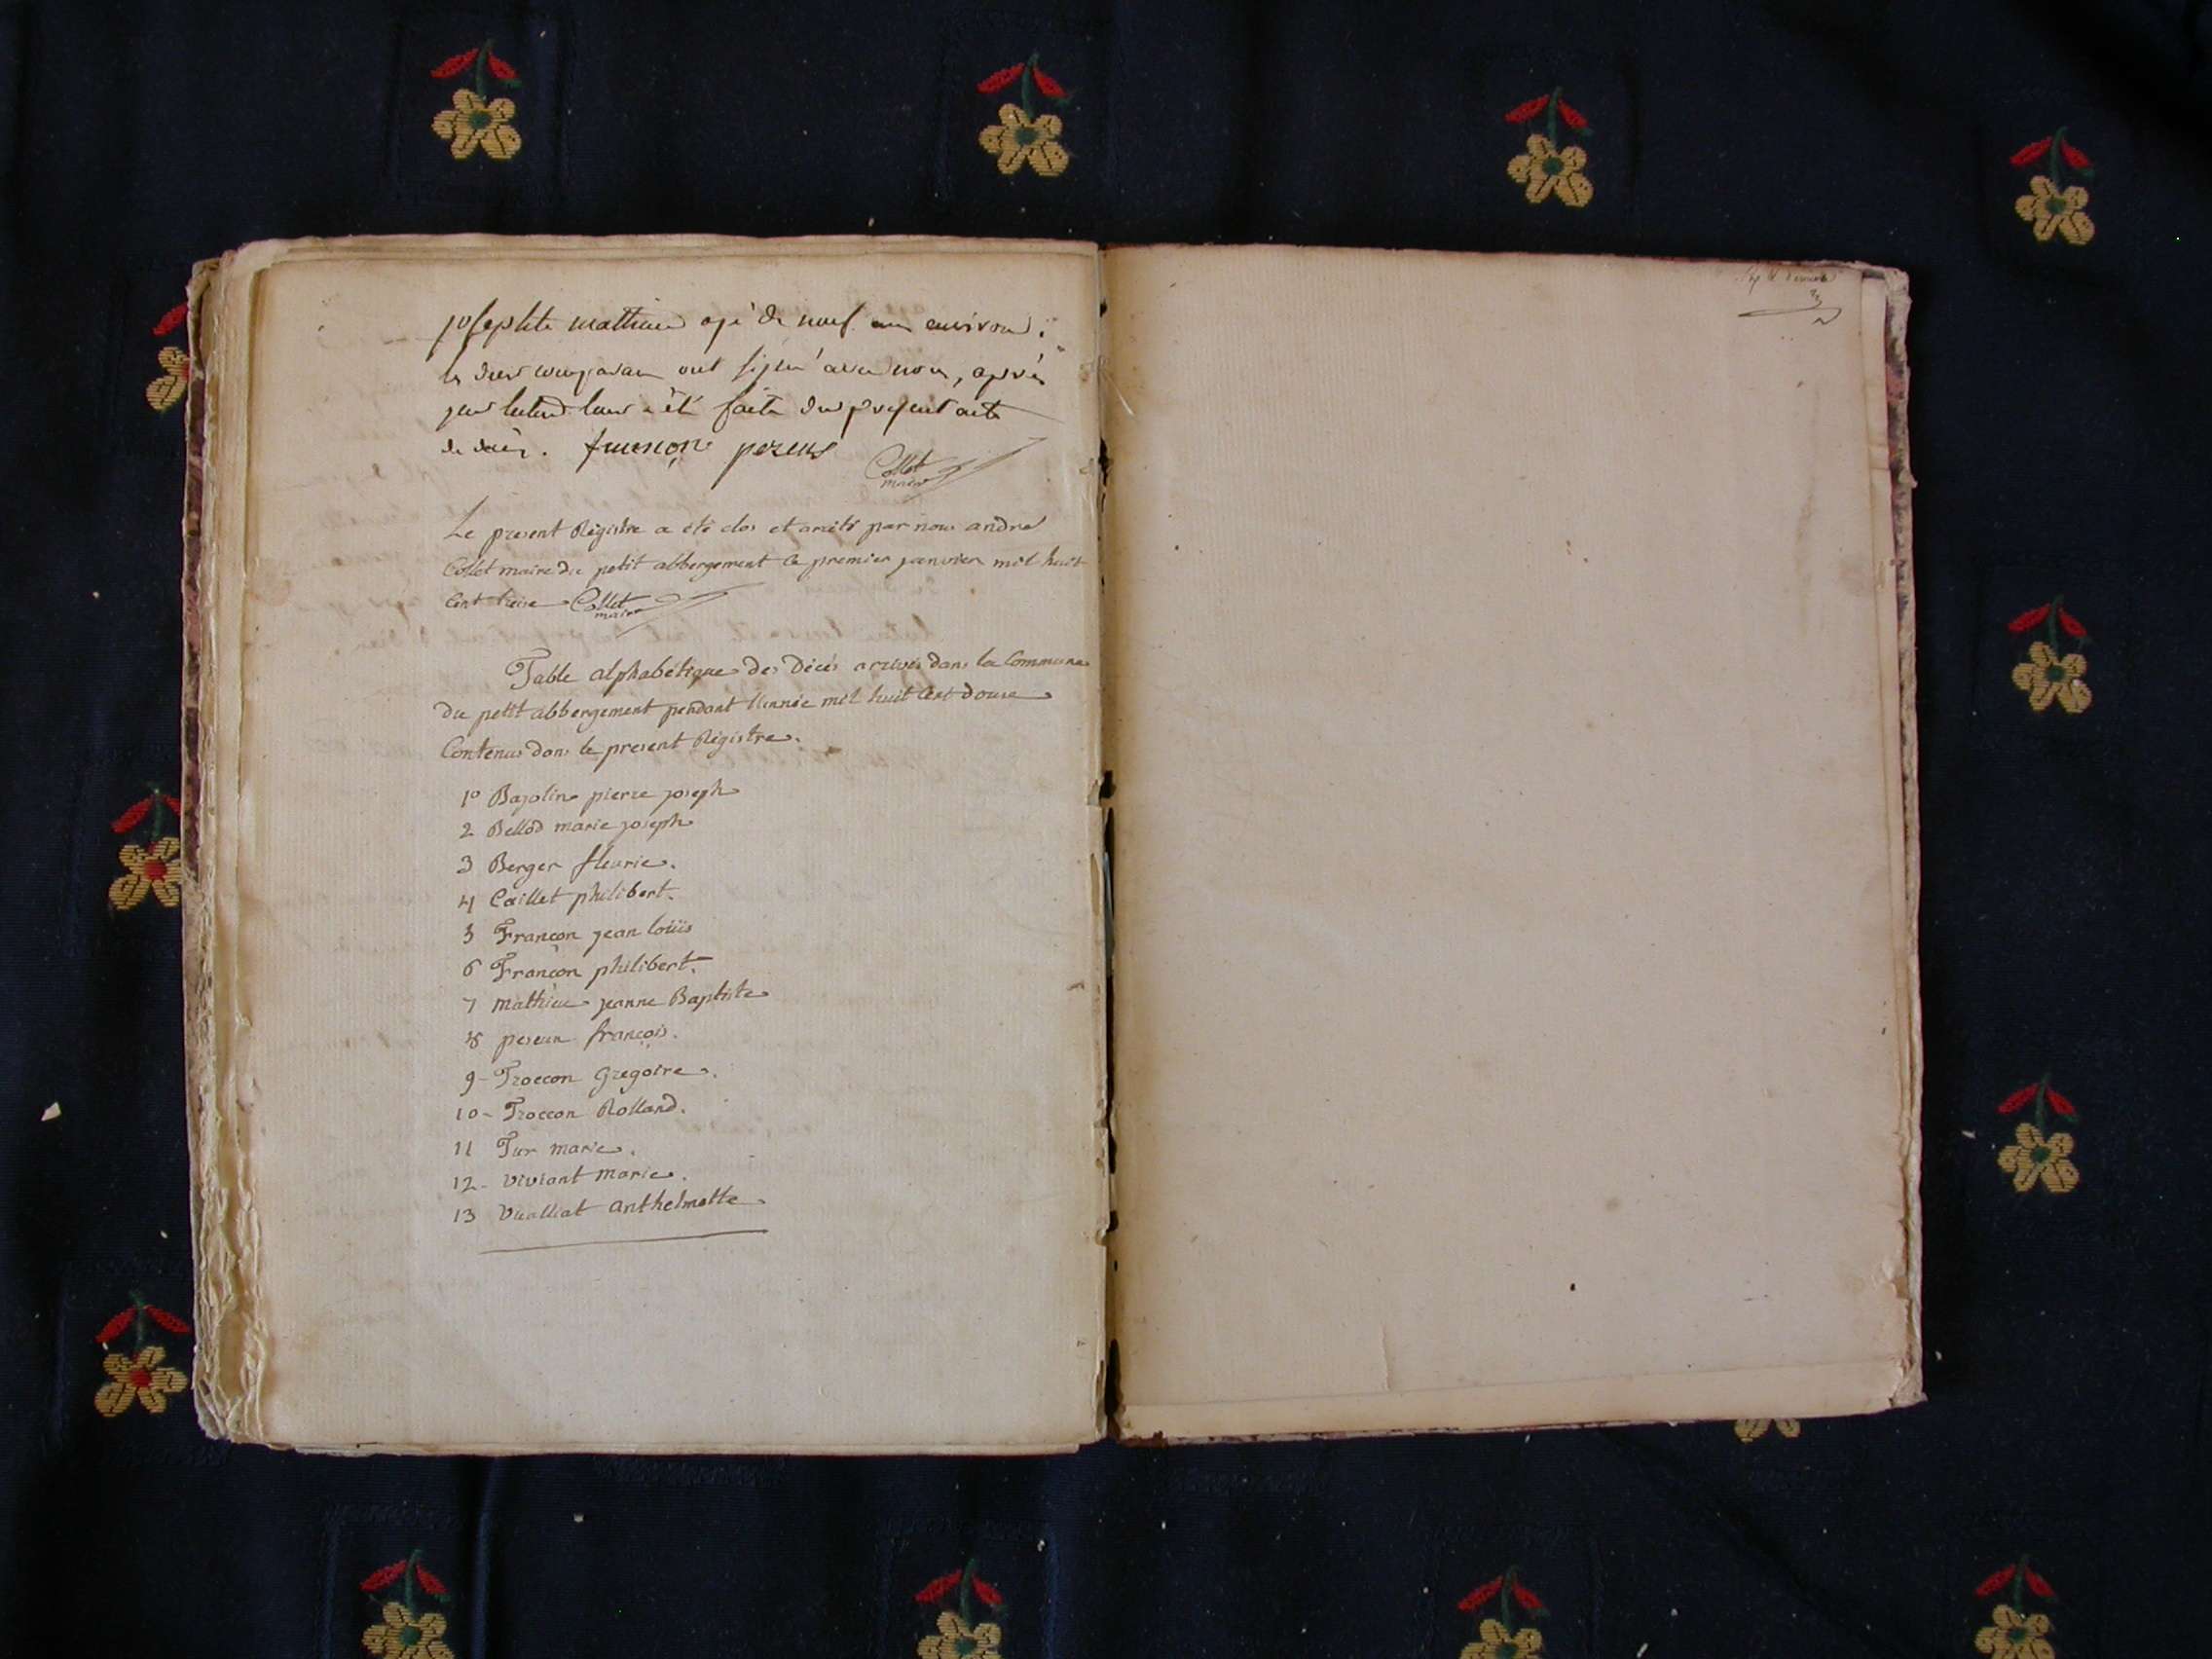 josephte mathieu agé de neuf ans environ.
les deux comparans ont signé avec nous, après
que lecture leur a été faite du present acte
de décès. françon perens Collet
maire
Le present Régistre a été clos et arrêté par nous andré
Collet maire du petit abbergement le premier janvier mil huit
Cent treise Collet
maire
Table alphabétique des Décès arrivés dans la Commune
du petit abbergement pendant l'année mil huit Cent douse
Contenus dans le present Régistre.
1º Bajolin pierre joseph
2 Bellod marie joseph
3 Berger fleurie.
4 Caillet philibert.
5 Françon jean loüis
6 Françon philibert.
7 mathieu jeanne Baptiste
8 pereun françois.
9- Troccon Gregoire.
10- Troccon Rolland.
11 Tur marie.
12- viviant marie.
13 Vualliat anthelmette